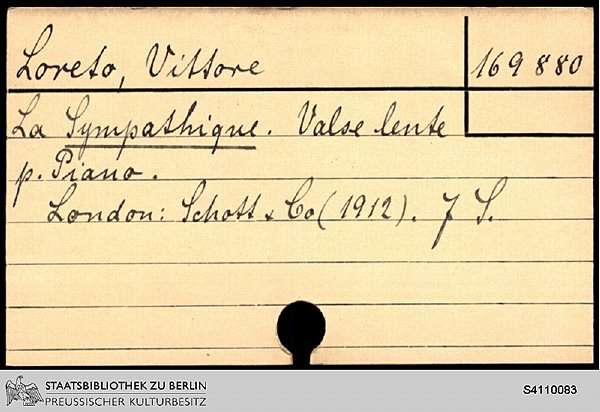 Loreto, Vittore
169 880
La Sympathique. Valse lente
p. Piano.
London: Schott & Co (1912). 7 S.
STAATSBIBLIOTHEK ZU BERLIN
PREUSSISCHER KULTURBESITZ
S4110083